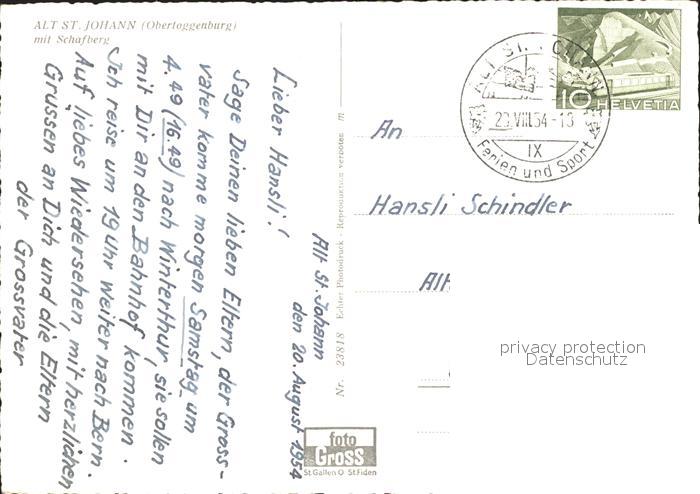 ALT ST. JOHANN (Obertoggenburg)
mit Schafberg
Alt St. Johann
den 20. August 1954
Lieber Hansli!
Sage Deinen lieben Eltern, der Gross-
vater komme morgen Samstag um
4.49 (16.49) nach Winterthur, sie sollen
mit Dir an den Bahnhof kommen.
Ich reise um 19 Uhr weiter nach Bern.
Auf liebes Wiedersehen, mit herzlichen
Grüssen an Dich und die Eltern
der Grossvater
Nr. 23818 Echter Photodruck - Reproduktion verboten
foto
GROSS
St. Gallen O St. Fiden
ALT ST. JOHANN
20.VIII.54-18
IX
Ferien und Sport
10 HELVETIA
An
Hansli Schindler
Alt
privacy protection
Datenschutz